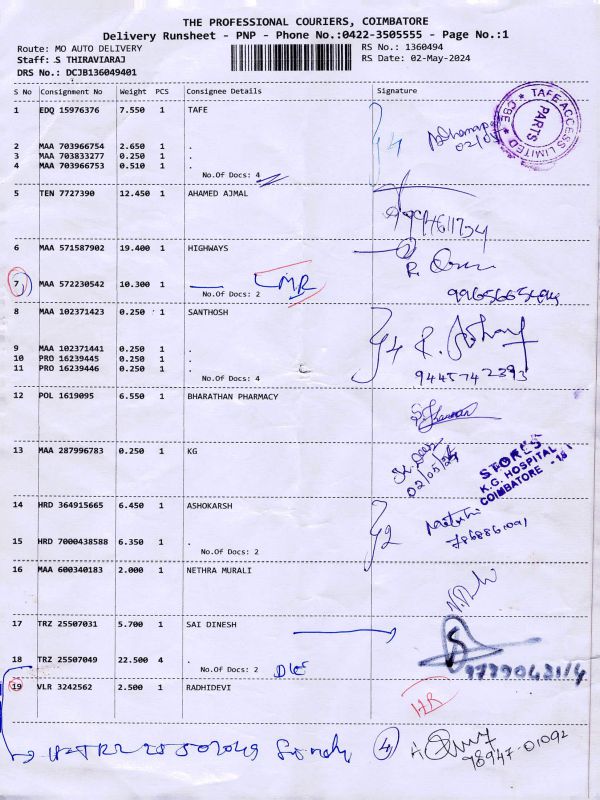 THE PROFESSIONAL COURIERS, COIMBATORE
Delivery Runsheet - PNP - Phone No.:0422-3505555 - Page No.:1
Route: MO AUTO DELIVERY RS No.: 1360494
Staff: .S THIRAVIARAJ RS Date: 02-May-2024
DRS No.: DCJB136049401
S No Consignment No Weight PCS Consignee Details Signature
1 EDQ 15976376 7.550 1 TAFE
TAFE ACCESS LIMITED * CBE *
PARTS
2 MAA 703966754 2.650 1 .
3 MAA 703833277 0.250 1 .
4 MAA 703966753 0.510 1 .
No.Of Docs: 4
5 TEN 7727390 12.450 1 AHAMED AJMAL
6 MAA 571587902 19.400 1 HIGHWAYS
7 MAA 572230542 10.300 1 MR
No.Of Docs: 2
8 MAA 102371423 0.250 1 SANTHOSH
9 MAA 102371441 0.250 1 .
10 PRO 16239445 0.250 1 .
11 PRO 16239446 0.250 1 .
No.Of Docs: 4
94457 42393
12 POL 1619095 6.550 1 BHARATHAN PHARMACY
13 MAA 287996783 0.250 1 KG
02/05/24
STORES
K.G. HOSPITAL
COIMBATORE - 18
14 HRD 364915665 6.450 1 ASHOKARSH
15 HRD 7000438588 6.350 1 .
No.Of Docs: 2
16 MAA 600340183 2.000 1 NETHRA MURALI
17 TRZ 25507031 5.700 1 SAI DINESH
18 TRZ 25507049 22.500 4 .
No.Of Docs: 2
19 VLR 3242562 2.500 1 RADHIDEVI
HR
4
78947-01092